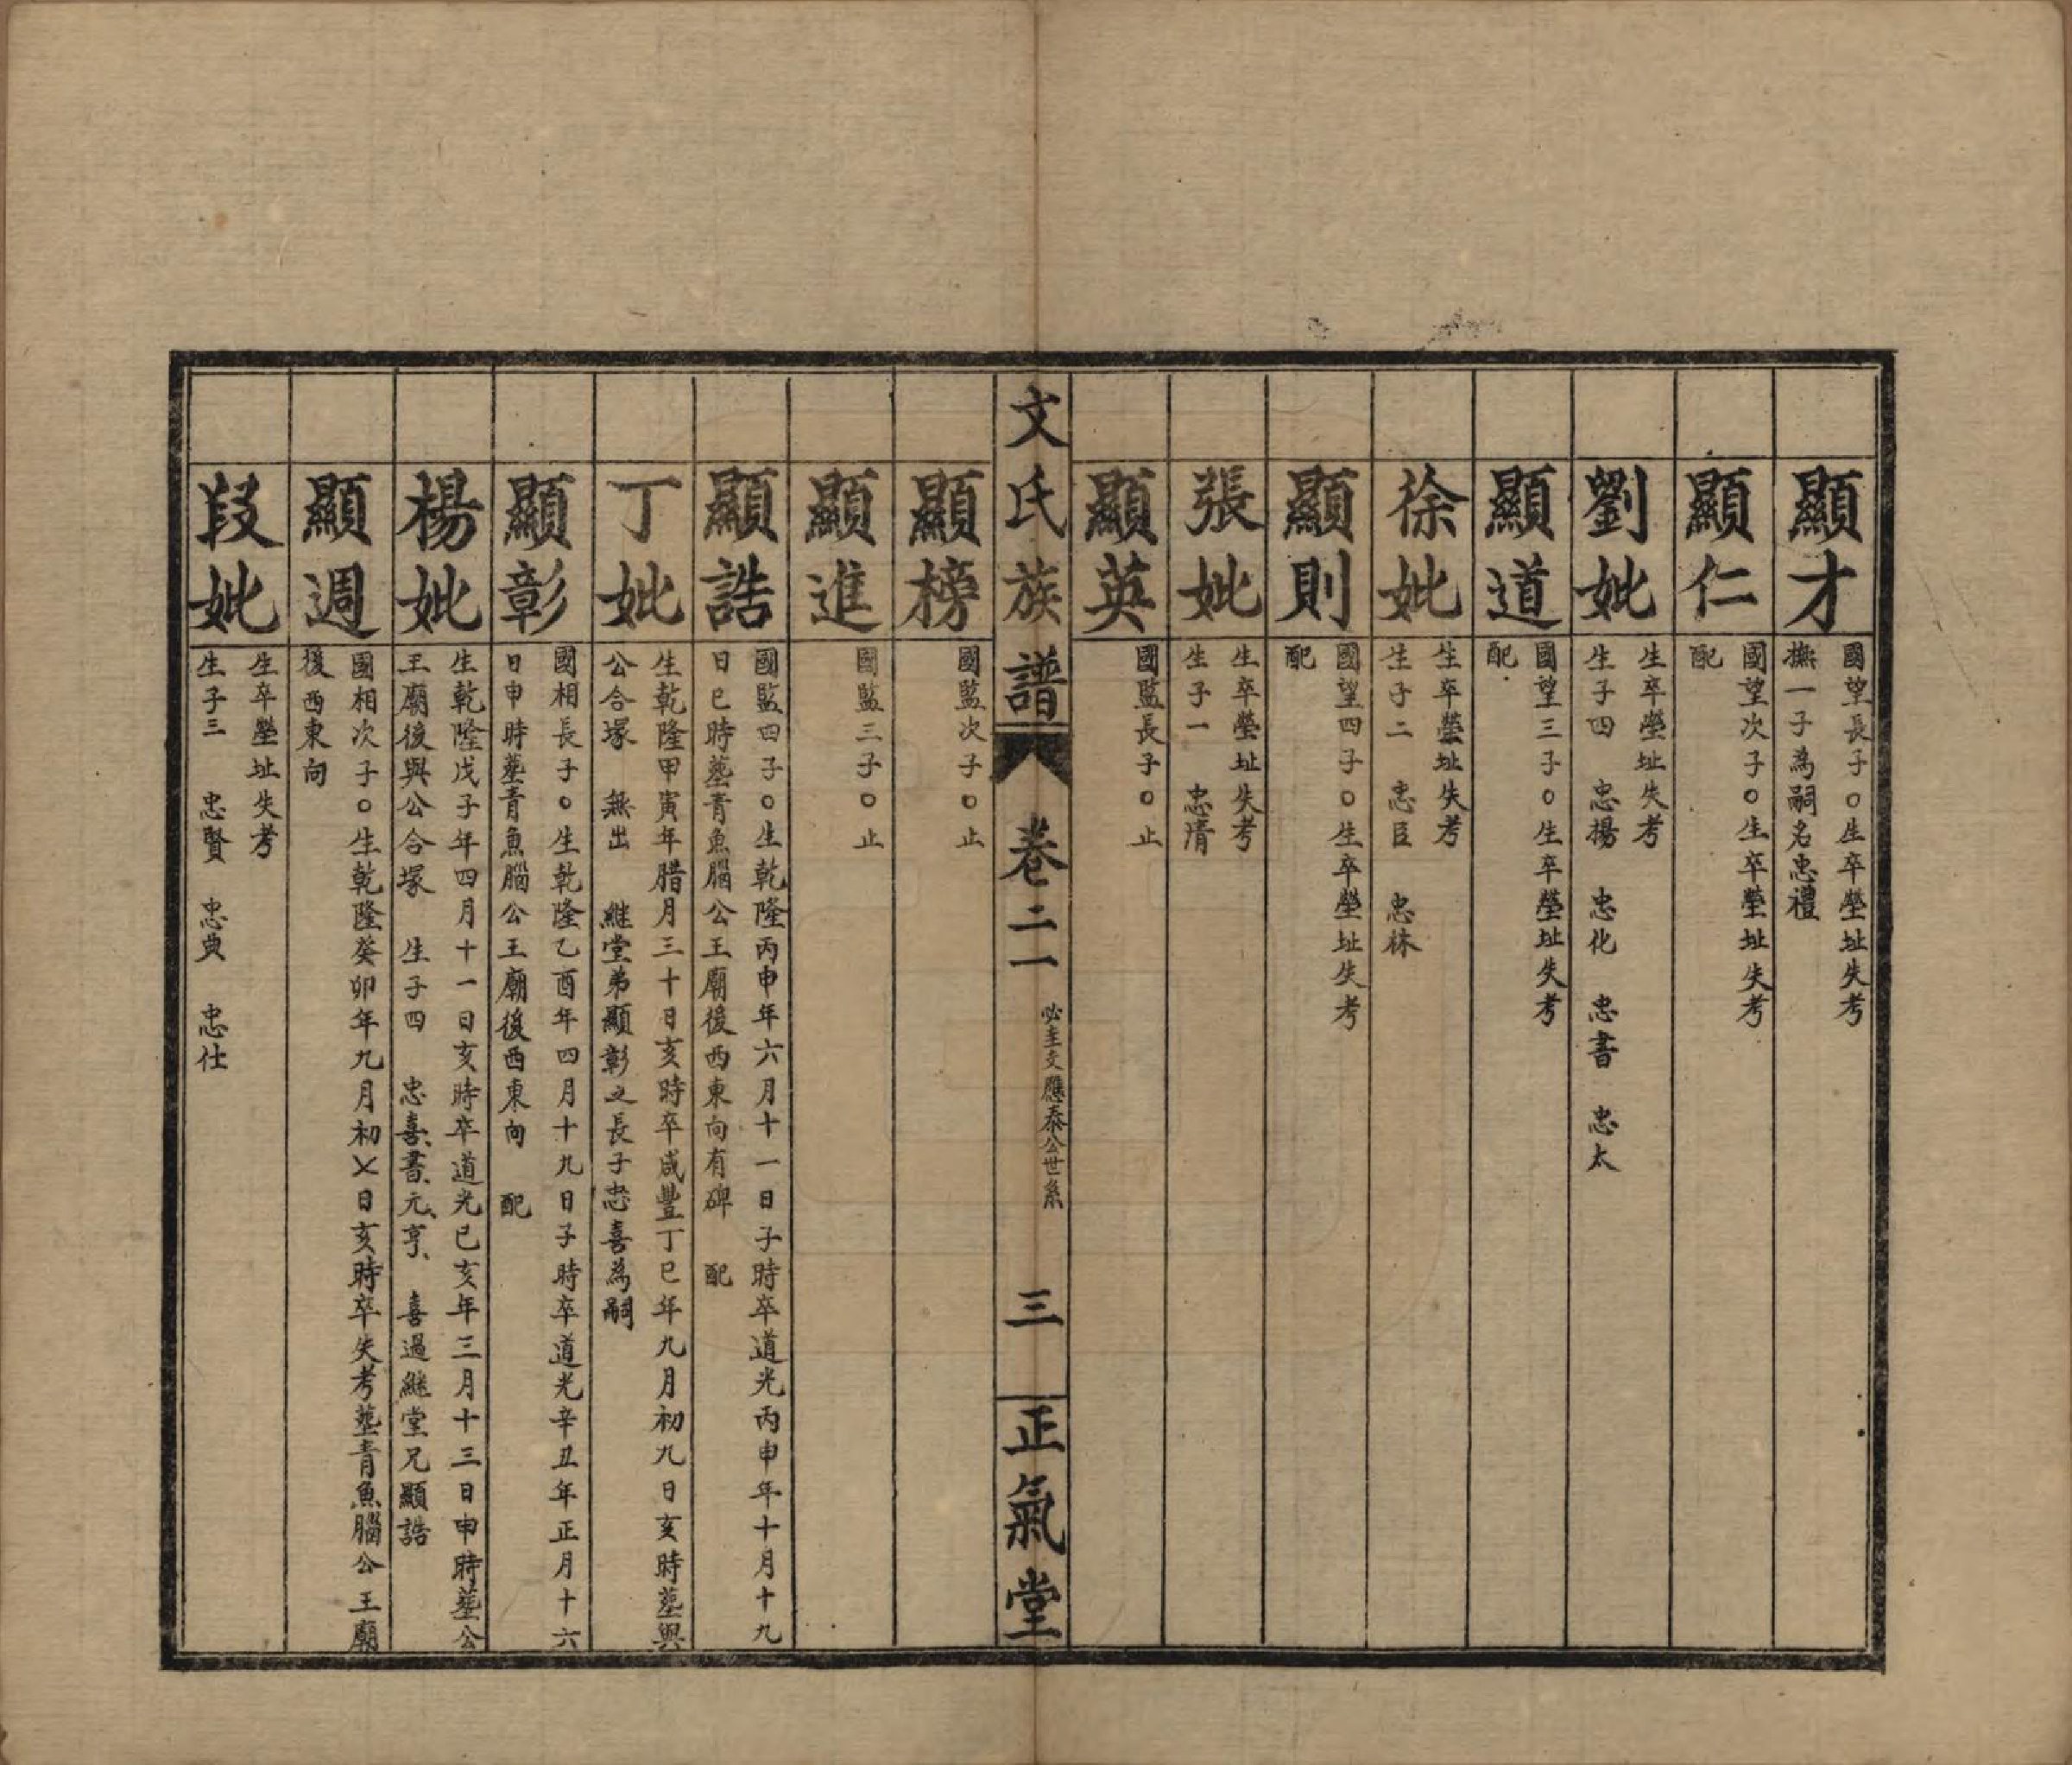 顯才
國望長子○生卒塋址失考
撫一子為嗣名忠禮
顯仁
國望次子○生卒塋址失考
配
劉妣
生卒塋址失考
生子四 忠揚 忠化 忠書 忠太
顯道
國望三子○生卒塋址失考
配
徐妣
生卒塋址失考
生子二 忠臣 忠林
顯則
國望四子○生卒塋址失考
配
張妣
生卒塋址失考
生子一 忠清
顯英
國監長子○止
文氏族譜 卷二一 必圭文應泰公世系 三 正氣堂
顯榜
國監次子○止
顯進
國監三子○止
顯誥
國監四子○生乾隆丙申年六月十一日子時卒道光丙申年十月十九
日巳時塟青魚腦公王廟後西東向有碑 配
丁妣
生乾隆甲寅年腊月三十日亥時卒咸豐丁巳年九月初九日亥時塟與
公合塚 無出 継堂弟顯彰之長子忠喜為嗣
顯彰
國相長子○生乾隆乙酉年四月十九日子時卒道光辛丑年正月十六
日申時塟青魚腦公王廟後西東向 配
楊妣
生乾隆戊子年四月十一日亥時卒道光已亥年三月十三日申時塟公
王廟後與公合塚 生子四 忠喜、書、元、亨、 喜過継堂兄顯誥
顯週
國相次子○生乾隆癸卯年九月初〤日亥時卒失考塟青魚腦公王廟
後西東向
段妣
生卒塋址失考
生子三 忠賢 忠典 忠仕